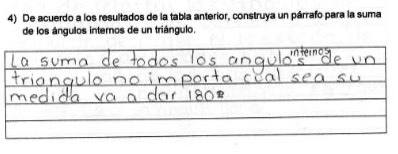 4) De acuerdo a los resultados de la tabla anterior, construya un párrafo para la suma
de los ángulos internos de un triángulo.
La suma de todos los angulos internos de un
triangulo no importa cual sea su
medida va a dar 180º